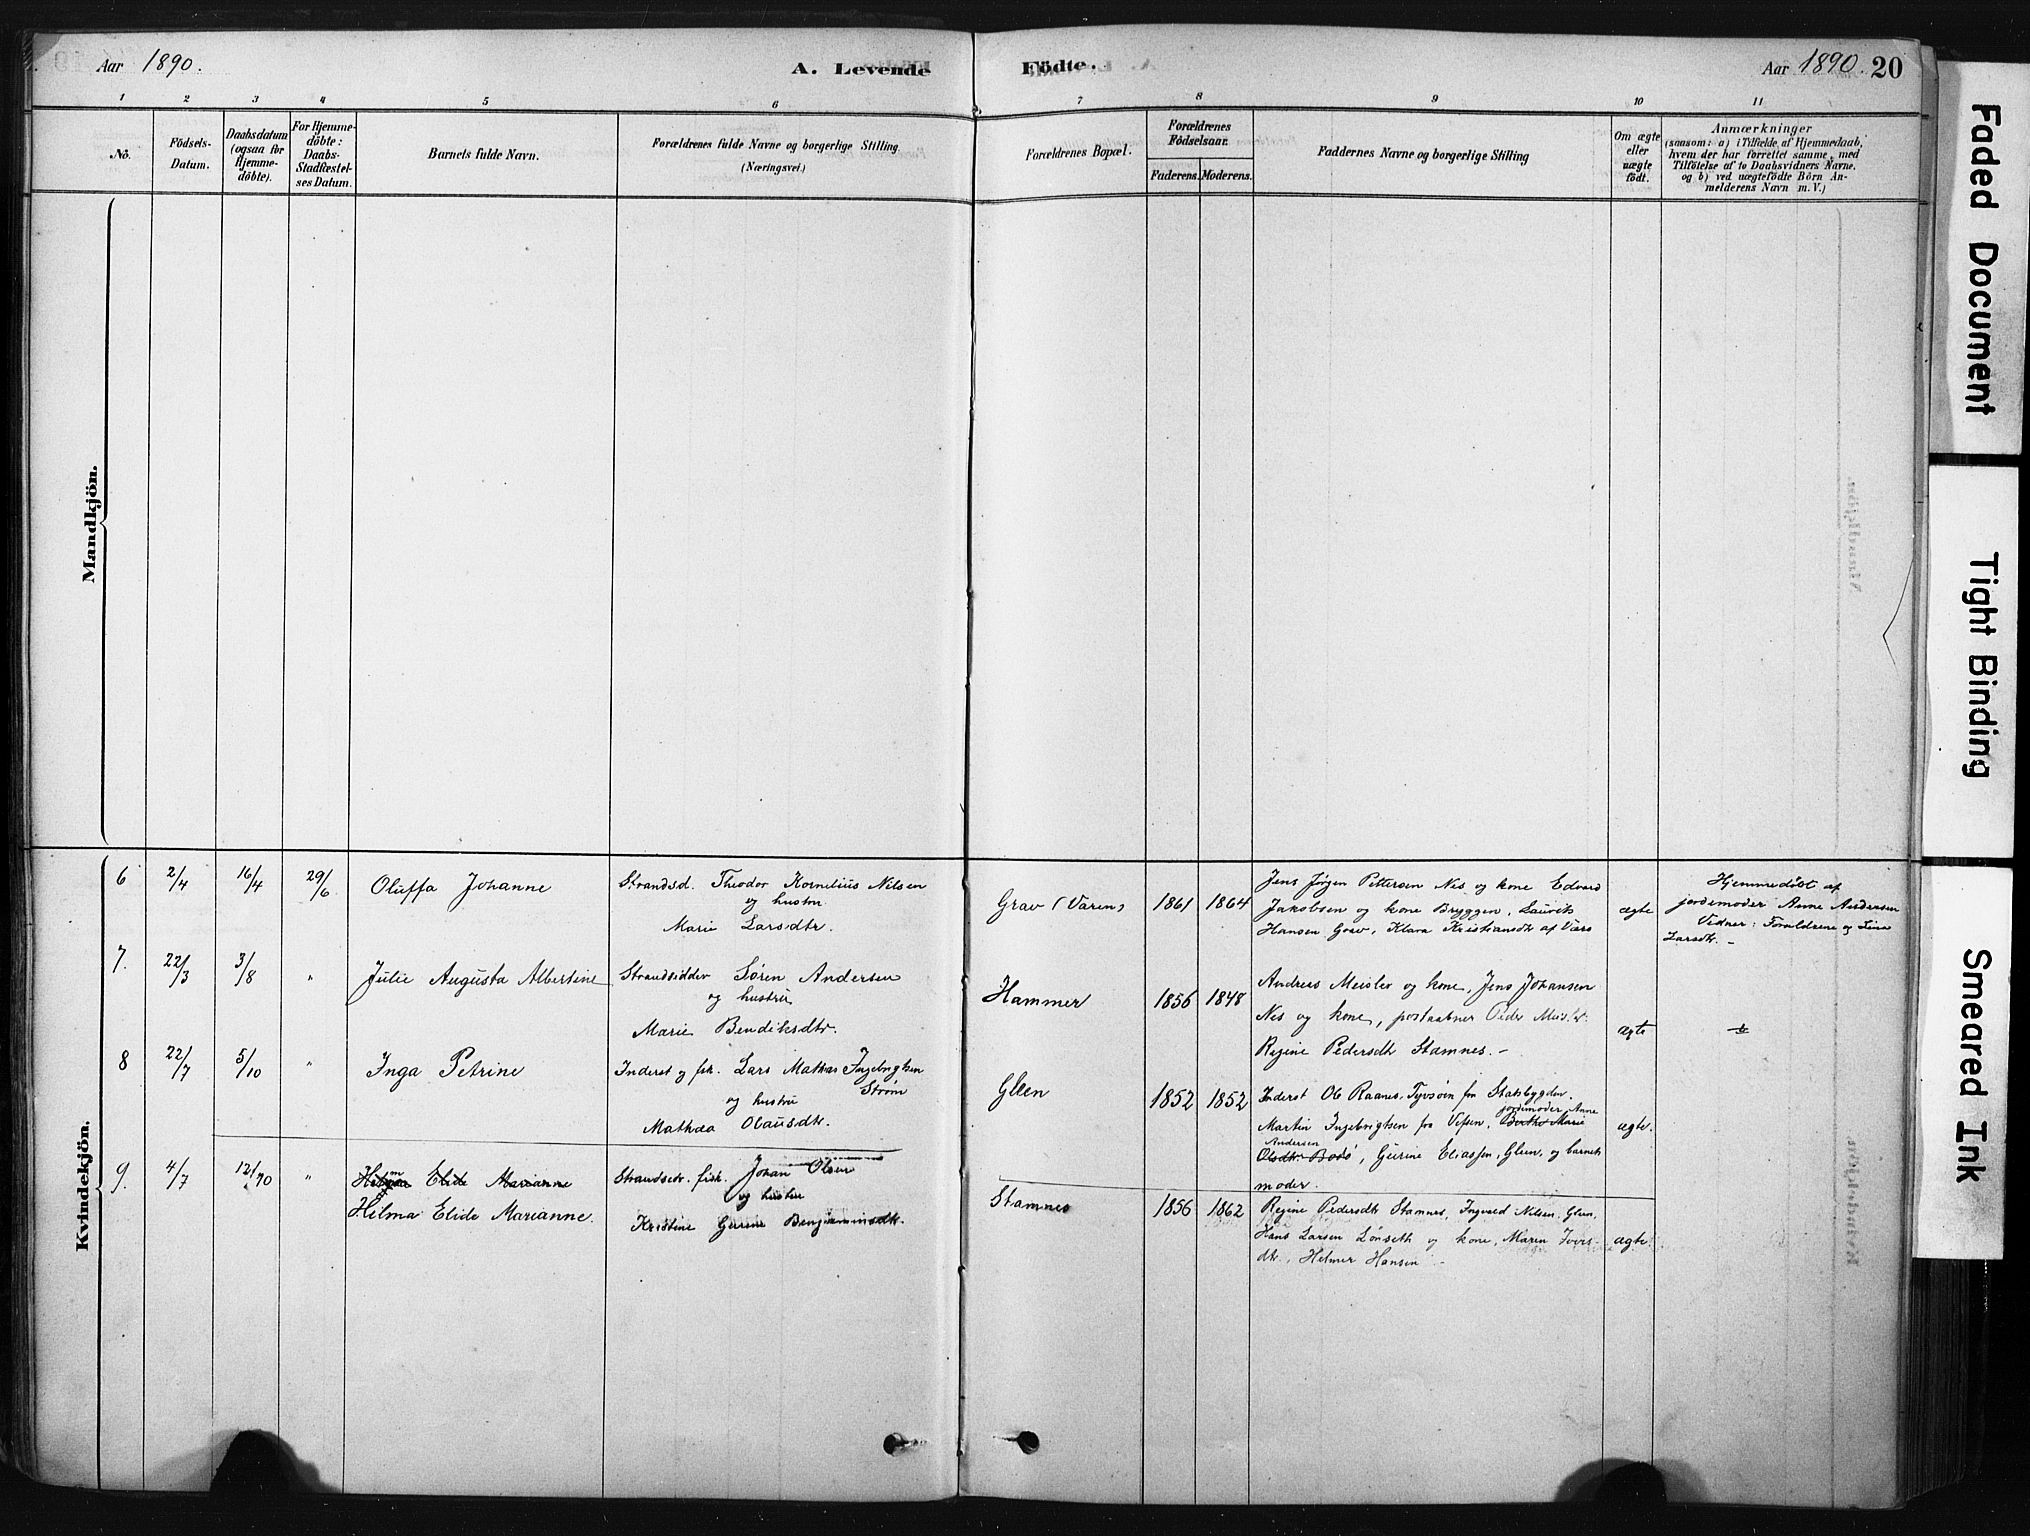 Aar 1890.
A. Levende
Födte.
Aar 1890. 20
1 2 3 4 5 6 7 8 9 10 11
No.
Födsels-
Datum.
Daabsdatum
(ogsaa for
Hjemme-
döbte).
For Hjemme-
döbte:
Daabs-
Stadfæstel-
ses Datum.
Barnets fulde Navn.
Forældrenes fulde Navne og borgerlige Stilling
(Næringsvei.)
Forældrenes Bopæl.
Forældrenes
Födselsaar.
Faderens. Moderens.
Faddernes Navne og borgerlige Stilling
Om ægte
eller
uægte
födt.
Anmærkninger
(saasom: a) i Tilfælde af Hjemmedaab,
hvem der har forrettet samme, med
Tilföielse af to Daabsvidners Navne,
og b) ved uægtefödte Börn An-
melderens Navn m. V.)
Mandkjön.
Kvindekjön.
6 2/4 16/4 29/6 Oluffa Johanne
Strandsd. Theodor Kornelius Nilsen
og hustru
Marie Larsdtr.
Grav (Ваren)
1861 1864
Jens Jørgen Pettersen Nes og kone Edvard
Jakobsen og kone Bryggen, Laurits
Hansen Grav, Klara Kristiansdtr af Værø
ægte
Hjemmedøbt af
jordemoder Anne Andersen
Vidner: Forældrene og Lina
Larsdtr. -
7. 22/3 3/8 " Julie Augusta Albertine
Strandsidder Søren Andersen
og hustru
Marie Bendiksdtr.
Hammer
1856 1848
Andreas Meisler og kone, Jens Johansen
Nes og kone, postaabner Peder
Regine Pedersdtr Stamnes. -
ægte
8 22/7 5/10 " Inga Petrine
Inderst og fisk. Lars Mathias Ingebrigtsen
Strøm
og hustru
Mathea Olausdtr.
Glein
1852 1852
Inderst Ole Raanes, Tyvsøen fra Stadsbygden.
Martin Ingebrigtsen fra Vefsen, Berthe Marie
jordemoder Anne
Andersen
Olsdtr. Bodø, Gurine Eliassen, Glein, og barnets
moder.
ægte.
9. 4/7 12/10 " Hilma Elide Marianne
Hilma Elide Marianne.
Strandsidr. fisk. Johan Olsen
og hustru
Kristine Gurine Benjaminsdtr.
Stamnes
1856 1862
Regine Pedersdtr Stamnes, Ingvald Nilsen, Glein,
Hans Larsen Lønseth og kone, Maren Ivers-
dtr., Helmer Hansen -
ægte.
Faded Document
Tight Binding
Smeared Ink